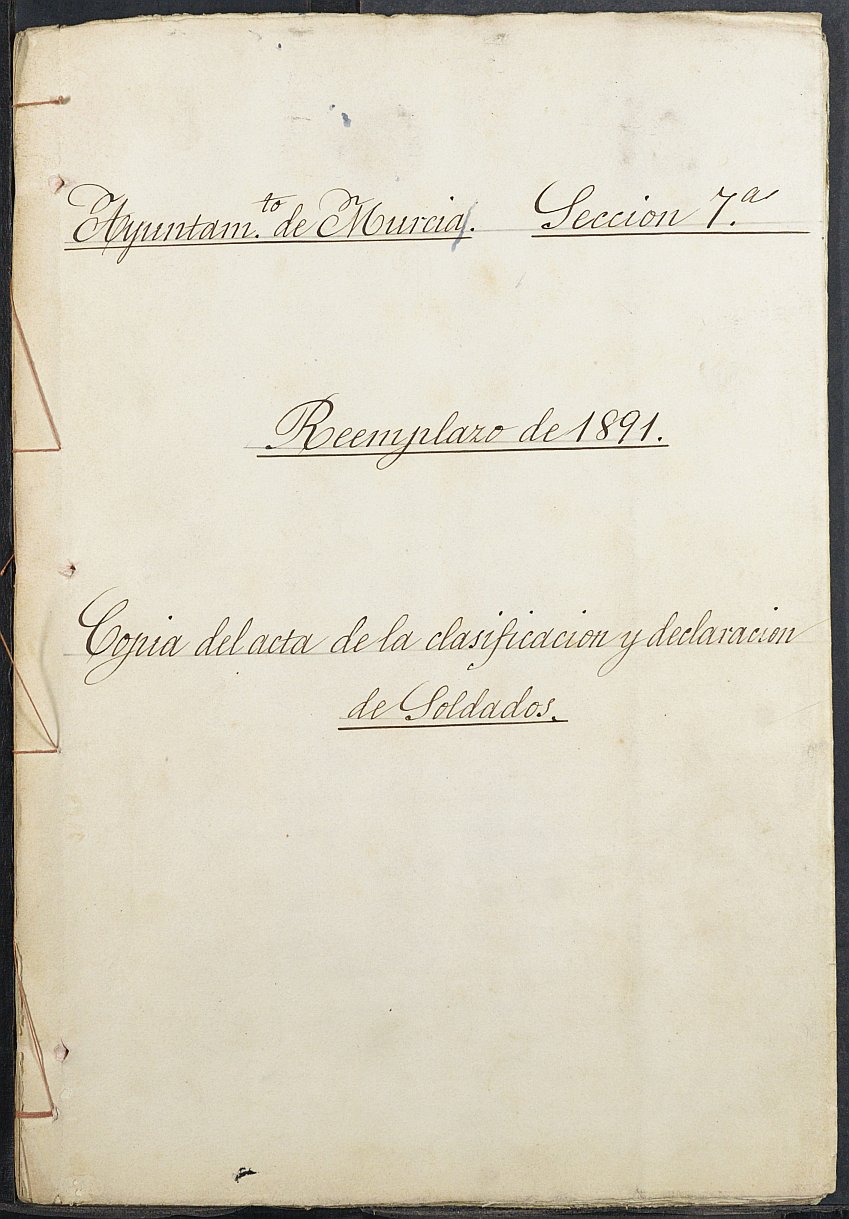 Ayuntam.to de Murcia. Seccion 7.a
Reemplazo de 1891.
Copia del acta de la clasificacion y declaracion
de Soldados.